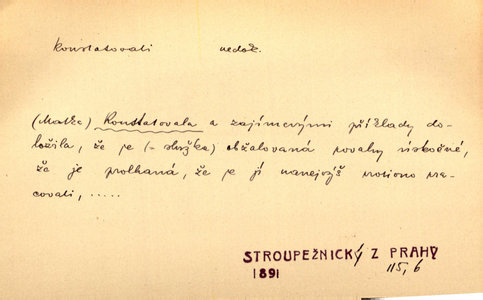 konstatovati nedok.
(Matka) konstatovala a zajímavými příklady do-
ložila, že je (- služka) obžalovaná povahy úskočné,
že je prolhaná, že je jí nanejvýš možno pra-
covati, .....
STROUPEŽNICKÝ Z PRAHY
1891 115, 6